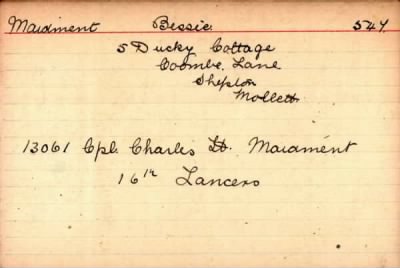 Maidment Bessie. 547.
5 Ducky Cottage
Coombe Lane
Shepton
Mollett
13061 Cpl. Charles H. Maidment
16th Lancers